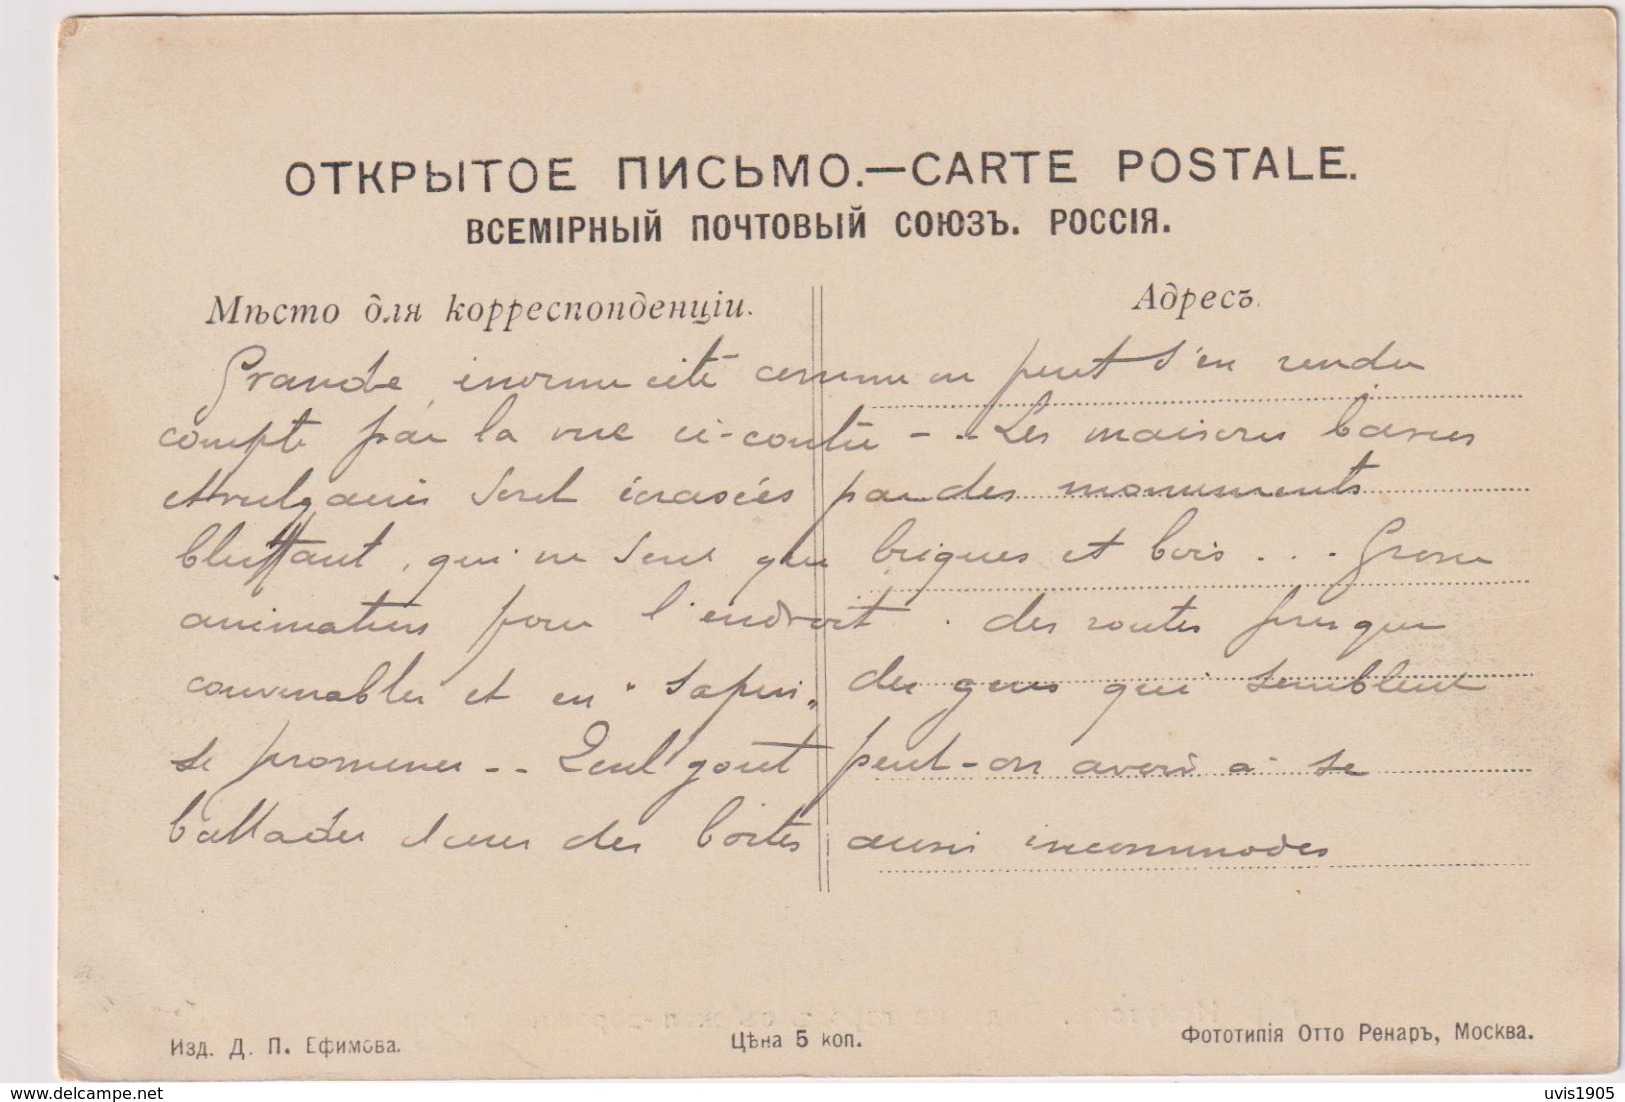 ОТКРЫТОЕ ПИСЬМО.—CARTE POSTALE.
ВСЕМІРНЫЙ ПОЧТОВЫЙ СОЮЗЪ. РОССІЯ.
Мѣсто для корреспонденціи.
Адресъ.
Grande, énorme cité comme on peut s'en rendre
compte par la vue ci-contre - .. Les maisons basses
et vulgaires sont écrasées par des monuments
bluffant, qui ne sont que briques et bois . . . Grosse
animation pour l'endroit . des routes presque
convenables et en "sapin" des gens qui semblent
se promener -- Quel gout peut-on avoir à se
ballader dans des boites aussi incommodes
Изд. Д. П. Ефимова.
Цѣна 5 коп.
Фототипія Отто Ренаръ, Москва.
uvis1905